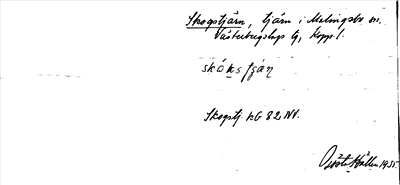 Skogstjärn, tjärn i Malingsbo sn.
Västerbergslags tg, Kopp. l.
skó̀ks
Skogstj. kG 82 NV.
Gösta Källen 1935.